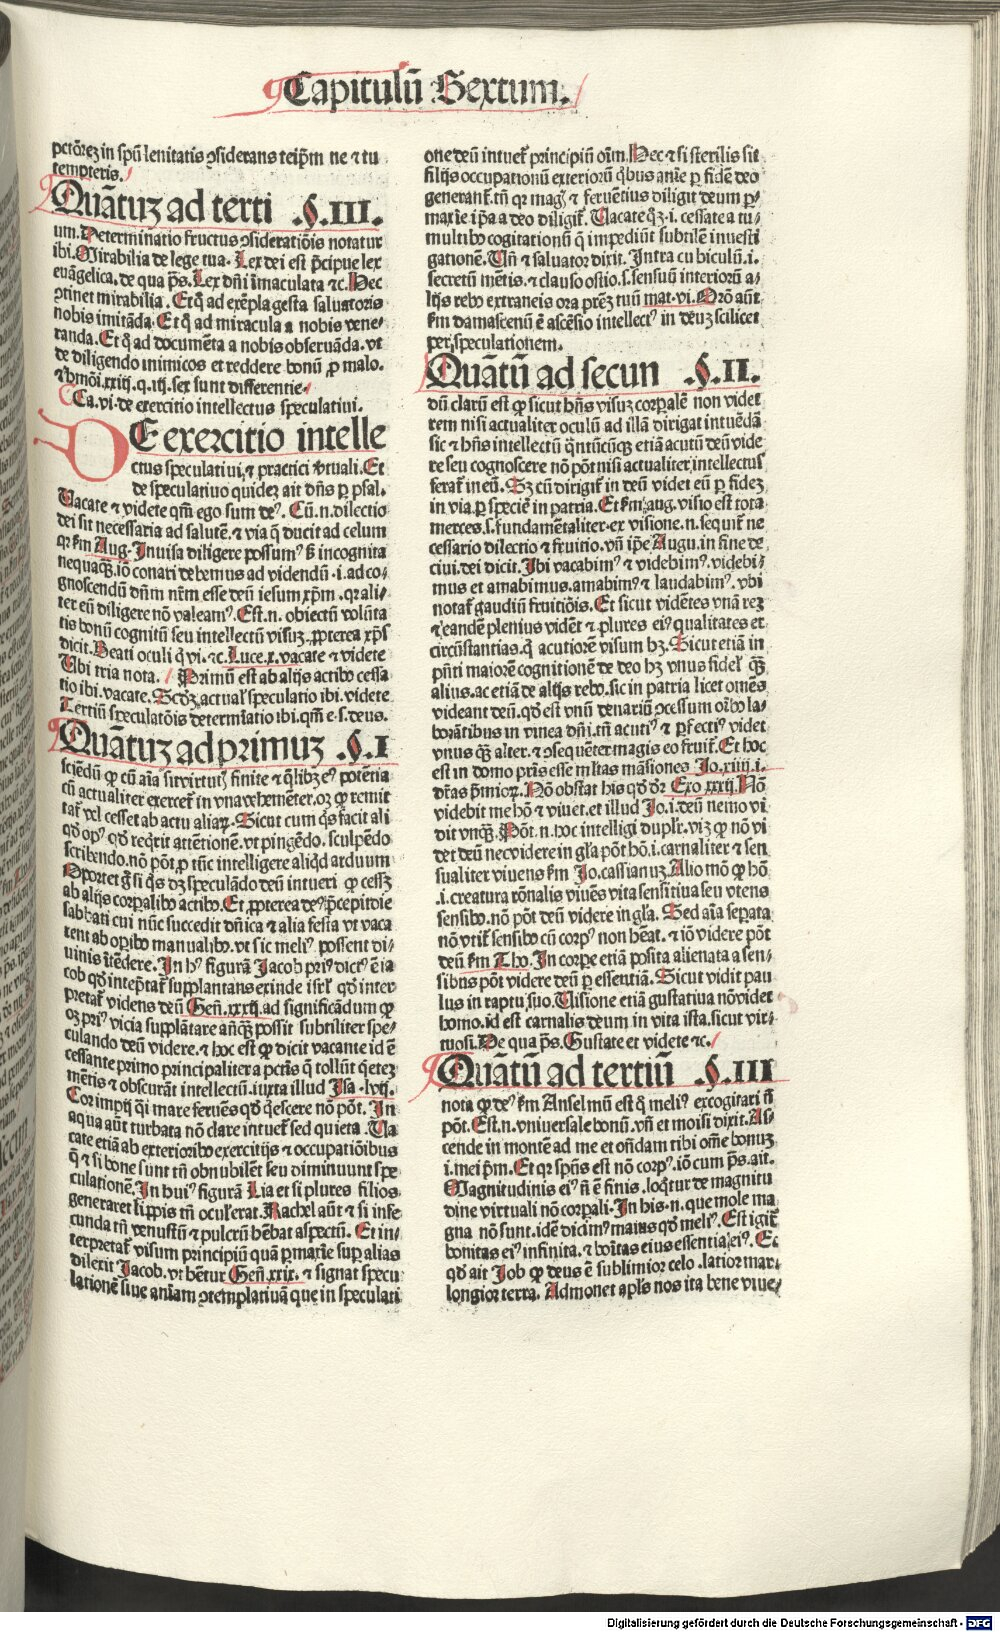 Capitulū Sextum.
pctōrez in spū lenitatis ↄsiderans teip̄m ne ⁊ tu
tempteris.
Quātuz ad terti .§.III.
um. Determinatio fructus ↄsideratiōis notatur
ibi. Mirabilia de lege tua. Lex dei est p̄cipue lex
euāgelica. de qua p̄s. Lex dn̄i īmaculata ⁊c. Hec
ↄtinet mirabilia. Et q̄ ad exēpla gesta saluatoris
nobis imitāda. Et q̄ ad miracula a nobis vene-
randa. Et q̄ ad documēta a nobis obseruāda. vt
de diligendo inimicos et reddere bonū p malo.
Ca. vi. de exercitio intellectus speculatiui.
DE exercitio intelle
ctus speculatiui, ⁊ practici v̄tuali. Et
de speculatiuo quidez ait dn̄s p psal.
Uacate ⁊ videte qm̄ ego sum deꝰ. Cū .n. dilectio
dei sit necessaria ad salutē. ⁊ via q̄ ducit ad celum
qꝛ s̄m Aug. Inuisa diligere possumꝰ s̄ incognita
nequaq̄ꝫ. iō conari debemus ad videndū .i. ad co-
gnoscendū dn̄m nr̄m esse deū iesum xp̄m. qꝛ ali-
ter eū diligere nō valeamꝰ. Est .n. obiectū volūta
tis bonū cognitū seu intellectū visuz. ꝓpterea xp̄s
dicit. Beati oculi q̄ vi. ⁊c. Luce .x. vacate ⁊ videte
Ubi tria nota. Primū est ab alijs actibꝰ cessa
tio ibi. vacate. Scd̄z actual' speculatio ibi. videte
Tertiū speculatōis determīatio ibi. qm̄ e. s. deus.
Quātuz ad primuz .§.I
sciēdū ꝙ cū aīa sit virtutꝭ finite ⁊ q̄libꝫ eiꝰ potētia
cū actualiter exercet̄ in vna vehemēter. oꝫ ꝙ remit
tat̄ vel cesset ab actu aliaꝝ. Sicut cum q̄s facit ali
qd̄ opꝰ qd̄ reqrit attētionē. vt pingēdo. sculpēdo
scribendo. nō pōt ꝓ tūc intelligere aliqd̄ arduum
Oportet g̊ si q̄s dꝫ speculādo deū intueri ꝙ cessꝫ
ab alijs corpalibꝰ actibꝰ. Et ꝓpterea deꝰ p̄cepit die
sabbati cui nūc succedit dn̄ica ⁊ alia festa vt vaca
rent ab opibꝰ manualibꝰ. vt sic meliꝰ possent di-
uinis ītēdere. In hꝰ figurā Jacob priꝰ dictꝰ ē ia
cob qd̄ intep̄tat̄ supplantans exinde isrl̄ qd̄ inter
pretat̄ videns deū Gen̄. xxxij. ad significādum ꝙ
oꝫ priꝰ vicia supplātare anq̄ꝫ possit subtiliter spe-
culando deū videre. ⁊ hoc est ꝙ dicit vacante id ē
cessante primo principaliter a pctīs q̄ tollūt q̄etez
mētis ⁊ obscurāt intellectū. iuxta illud Isa. lvij.
Cor impij q̄i mare feruēs qd̄ q̄escere nō pōt. In
aqua aūt turbata nō clare intuet̄ sed quieta. Ua
cate etiā ab exterioribꝰ exercitijs ⁊ occupatiōibus
q̄ ⁊ si bone sunt tn̄ obnubilēt seu diminuunt spe
culationē. In huiꝰ figurā Lia et si plures filios
generaret lippis tn̄ ocul' erat. Rachel aūt ⁊ si infe
cunda tn̄ venustū ⁊ pulcrū hēbat aspectū. Et in-
terpretat̄ visum principiū quā p marīe sup alias
dilexit Jacob. vt hēt̄ur Gen̄. xxix. ⁊ signat specu
lationē siue aniam ↄtemplatiuā que in speculati
one deū intuet̄ principiū oīm. Hec ⁊ si sterilis sit
filijs occupationū exterioꝝ q̄bus anīe p fidē deo
generant̄. tn̄ qꝛ magꝭ ⁊ feruētius diligit deum p-
maxīe ip̄a a deo diligit̄. Uacate q̄ꝫ .i. cessate a tu-
multibꝰ cogitationū q̄ impediūt subtilē inuesti
gationē. Un̄ ⁊ saluator dixit. Intra cubiculū .i.
secretū mētis. ⁊ clauso ostio .s. sensuū interioꝝ a-
lijs rebꝰ extraneis ora p̄rēz tuū mat. vi. Orō aūt
s̄m damascenū ē ascēsio intellectꝰ in deuz scilicet
per speculationem.
Quātū ad secun .§.II.
dū clarū est ꝙ sicut hn̄s visuz corpalē non videt
rem nisi actualiter oculū ad illā dirigat intuēdā
sic ⁊ hn̄s intellectū q̄ntūcūqꝫ etiā acutū deū vide
re seu cognoscere nō pōt nisi actualiter intellectus
ferat̄ in eū. Sꝫ cū dirigit̄ in deū videt eū p fidez
in via. p speciē in patria. Et s̄m aug. visio est tota
merces .s. fundamētaliter. ex visione .n. sequit̄ ne
cessario dilectio ⁊ fruitio. vn̄ ip̄e Augu. in fine de
ciui. dei dicit. Ibi vacabimꝰ ⁊ videbimꝰ. videbi-
mus et amabimus. amabimꝰ ⁊ laudabimꝰ. vbi
notat̄ gaudiū fruitiōis. Et sicut vidētes vnā rez
⁊ eandē plenius vidēt ⁊ plures eiꝰ qualitates et
circūstantias. q̄ acutiorē visum hꝫ. Sicut etiā in
pn̄ti maiorē cognitionē de deo hꝫ vnus fidel' q̄ꝫ
alius. ac etiā de alijs rebꝰ. sic in patria licet omēs
videant deū. qd̄ est vnū denariū ↄcessum oībꝰ la-
borātibus in vinea dn̄i. tn̄ acutiꝰ ⁊ pfectiꝰ videt
vnus q̄ꝫ alter. ⁊ ↄsequēter magis eo fruit̄. Et hoc
est in domo pr̄is esse mltas māsiones Jo. xiiij .i.
dr̄as p̄mioꝝ. Nō obstat his qd̄ dr̄ Exo xxxij. Nō
videbit me hō ⁊ viuet. et illud Jo. i. deū nemo vi
dit vnq̄ꝫ. Pōt .n. hoc intelligi duplr̄. viꝫ ꝙ nō vi
det deū nec videre in gl̄a pōt hō .i. carnaliter ⁊ sen
sualiter viuens s̄m Jo. cassianuz. Alio mō ꝙ hō
.i. creatura rōnalis viuēs vita sensitiua seu vtens
sensibꝰ. nō pōt deū videre in gl̄a. Sed aīa sepata
nō vtit̄ sensibꝰ cū corpꝰ non hēat. ⁊ iō videre pōt
deū s̄m Tho. In corpe etiā posita alienata a sen-
sibus pōt videre deū p essentiā. Sicut vidit pau
lus in raptu suo. Uisione etiā gustatiua nō videt
homo. id est carnalis deum in vita ista. sicut vir-
tuosi. De qua p̄s. Gustate et videte ⁊c.
Quātū ad tertiū .§.III
nota ꝙ deꝰ s̄m Anselmū est q̄ meliꝰ excogitari n̄
pōt. Est .n. vniuersale bonū. vn̄ et moisi dixit. As
cende in montē ad me et on̄dam tibi om̄e bonuz
.i. meip̄m. Et qꝛ spūs est nō corpꝰ. iō cum p̄s. ait.
Magnitudinis eiꝰ n̄ ē finis. loqtur de magnitu
dine virtuali nō corpali. In his .n. que mole ma
gna nō sunt. idē dicimꝰ maius qd̄ meliꝰ. Est igit̄
bonitas eiꝰ infinita. ⁊ bōitas eius essentia eiꝰ. Ec
qd̄ ait Job ꝙ deus ē sublimior celo. latior mar.
longior terra. Admonet apl̄s nos ita bene viue-
Digitalisierung gefördert durch die Deutsche Forschungsgemeinschaft - DFG